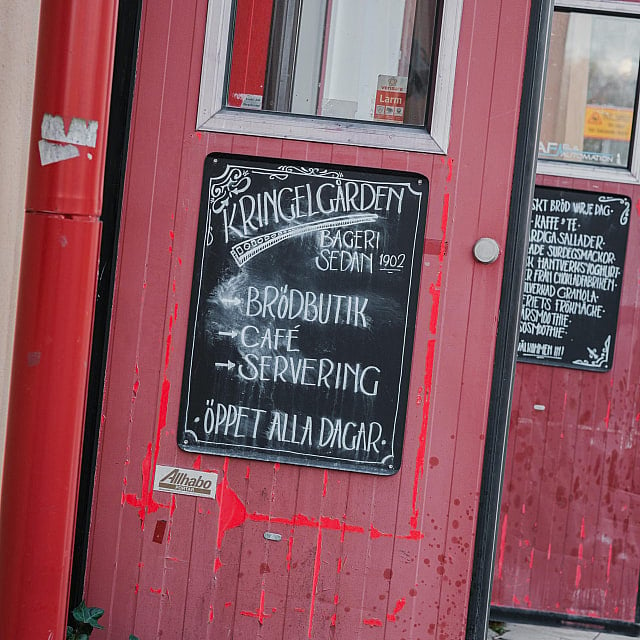 Larm
KRINGELGÅRDEN
BAGERI
SEDAN 1902
→ BRÖDBUTIK
→ CAFÉ
→ SERVERING
·ÖPPET ALLA DAGAR·
Allhabo
PORTAR
AUTOMATION
SKT BRÖD VARJE DAG·
·KAFFE & TE·
RDIGA SALLADER·
DE SURDEGSMACKOR·
K HANTVERKSYOGHURT·
ER FRÅN CHOKLADFABRIKEN·
LLVERKAD GRANOLA·
ERIETS FRÖKNÄCKE·
ÄRSMOOTHIE·
DSMOOTHIE·
ÄLKOMMEN !!!